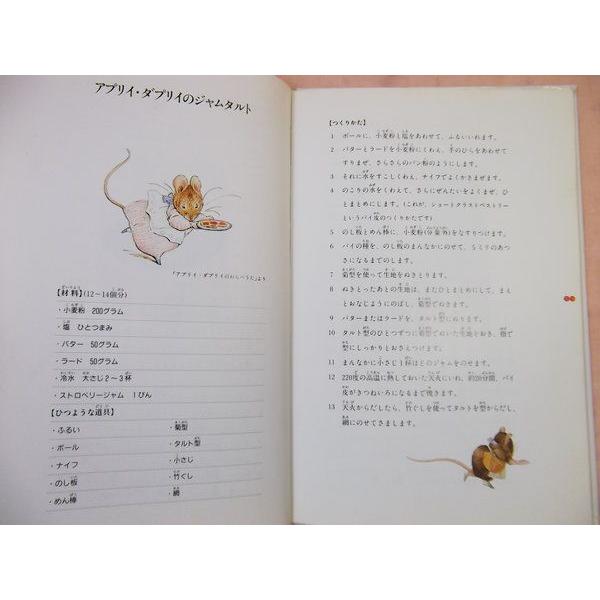 アプリイ・ダプリイのジャムタルト
「アプリイ・ダプリイのわらべうた」より
【材料】(12〜14個分)
・小麦粉 200グラム
・塩 ひとつまみ
・バター 50グラム
・ラード 50グラム
・冷水 大さじ2〜3杯
・ストロベリージャム 1びん
【ひつような道具】
・ふるい
・ボール
・ナイフ
・のし板
・めん棒
・菊型
・タルト型
・小さじ
・竹ぐし
・網
【つくりかた】
1 ボールに、小麦粉と塩をあわせて、ふるいいれます。
2 バターとラードを小麦粉にくわえ、手のひらをあわせて
すりまぜ、さらさらのパン粉のようにします。
3 それに水をすこしくわえ、ナイフでよくかきまぜます。
4 のこりの水をくわえて、さらにぜんたいをよくまぜ、ひ
とまとめにします。(これが、ショートクラストペストリー
というパイ皮のつくりかたです)
5 のし板とめん棒に、小麦粉(分量外)をなすりつけます。
6 パイの種を、のし板のまんなかにのせて、5ミリのあつ
さになるまでのします。
7 菊型を使って生地をぬきとります。
8 ぬきとったあとの生地は、まだひとまとめにして、まえ
とおなじようにのばし、菊型でぬきます。
9 バターまたはラードを、タルト型にぬります。
10 タルト型のひとつずつに菊型でぬいた生地をおき、指で
型にしっかりとおさえつけます。
11 まんなかに小さじ1杯ほどのジャムをのせます。
12 220度の高温に熱しておいた天火にいれ、約20分間、パイ
皮がきつねいろになるまで焼きます。
13 天火からだしたら、竹ぐしを使ってタルトを型からだし、
網にのせてさまします。